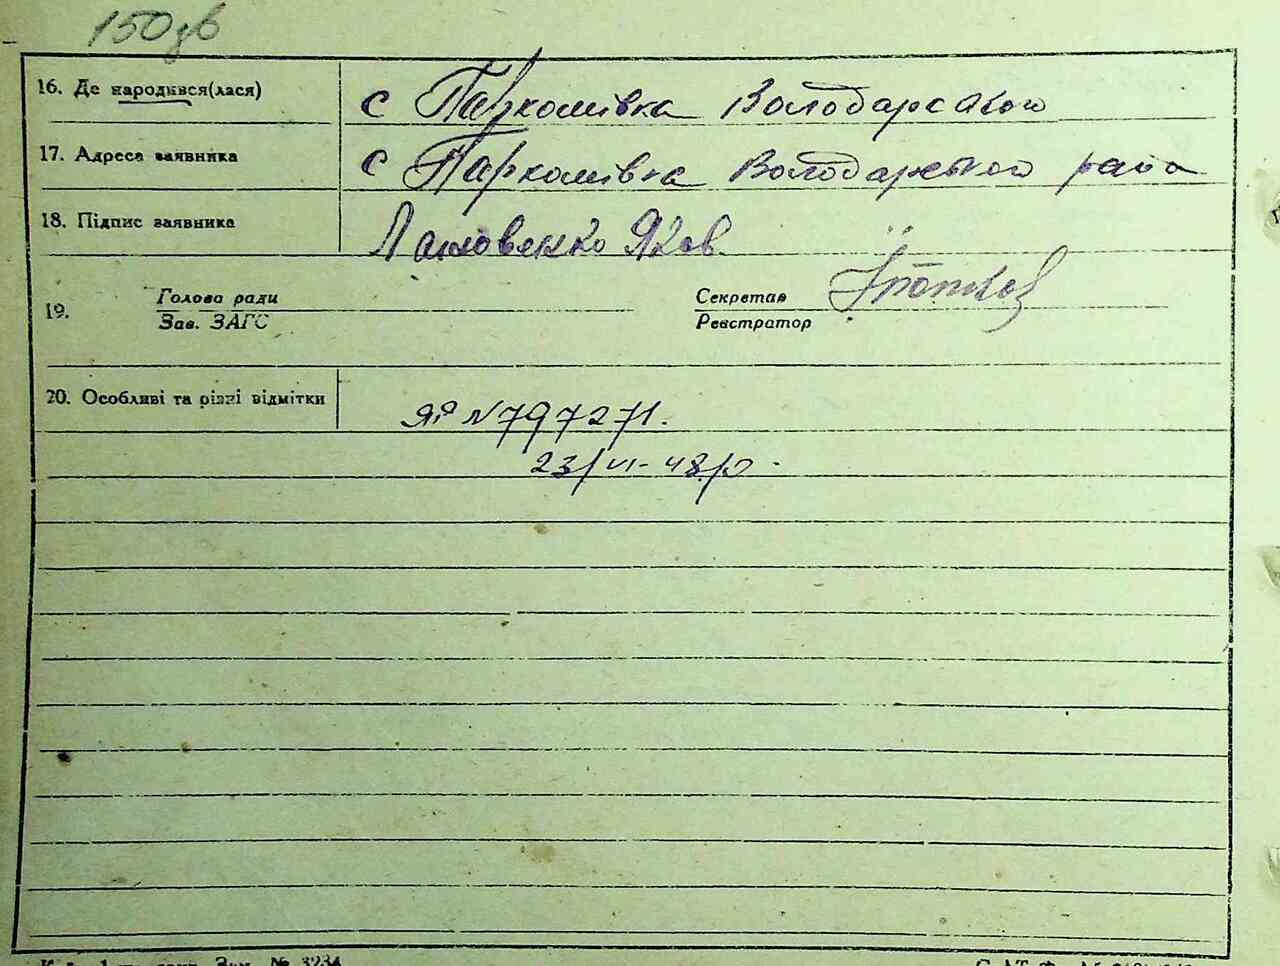 150зв
16. Де народився(лася) с Пархомівка Володарського
17. Адреса заявника с Пархомівка Володарського райо
18. Підпис заявника Яков
Голова ради Секретар
19.
Зав. ЗАГС Реєстратор
20. Особливі та різні відмітки ЯР N 797271.
23/VI-48/р.
Зам. № 3234